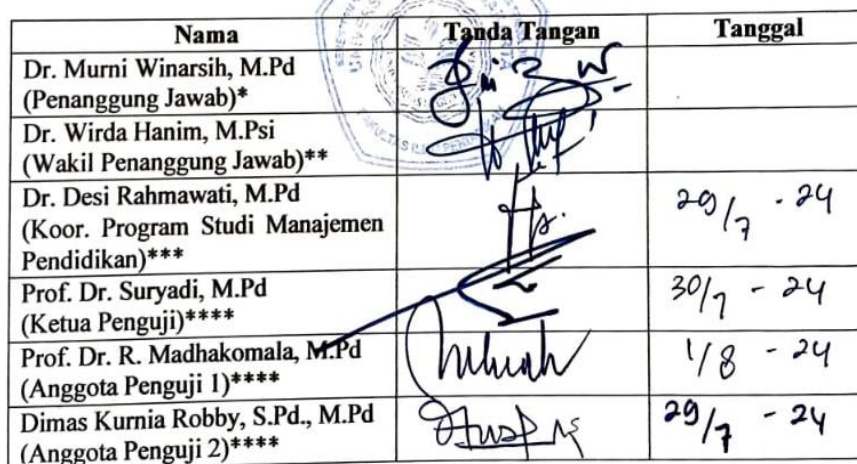 Nama Tanda Tangan Tanggal
Dr. Murni Winarsih, M.Pd
(Penanggung Jawab)*
Dr. Wirda Hanim, M.Psi
(Wakil Penanggung Jawab)**
Dr. Desi Rahmawati, M.Pd
(Koor. Program Studi Manajemen
Pendidikan)***
29/7 - 24
Prof. Dr. Suryadi, M.Pd
(Ketua Penguji)****
30/7 - 24
Prof. Dr. R. Madhakomala, M.Pd
(Anggota Penguji 1)****
1/8 - 24
Dimas Kurnia Robby, S.Pd., M.Pd
(Anggota Penguji 2)****
29/7 - 24